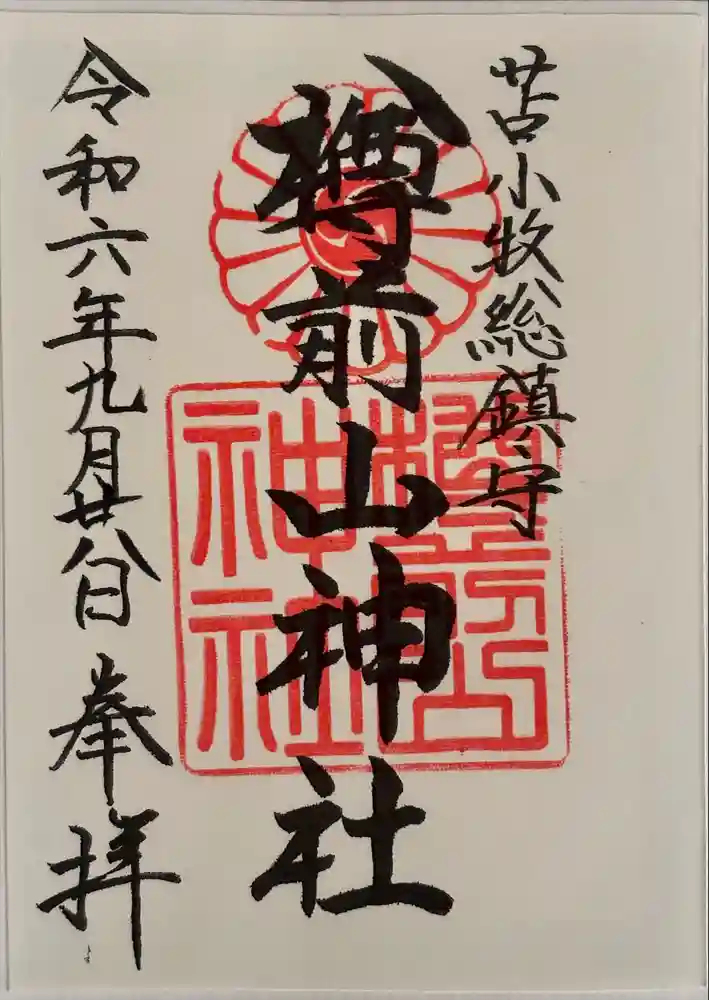 苫小牧総鎮守
樽前山神社
樽前山神社
令和六年九月廿八日 奉拝